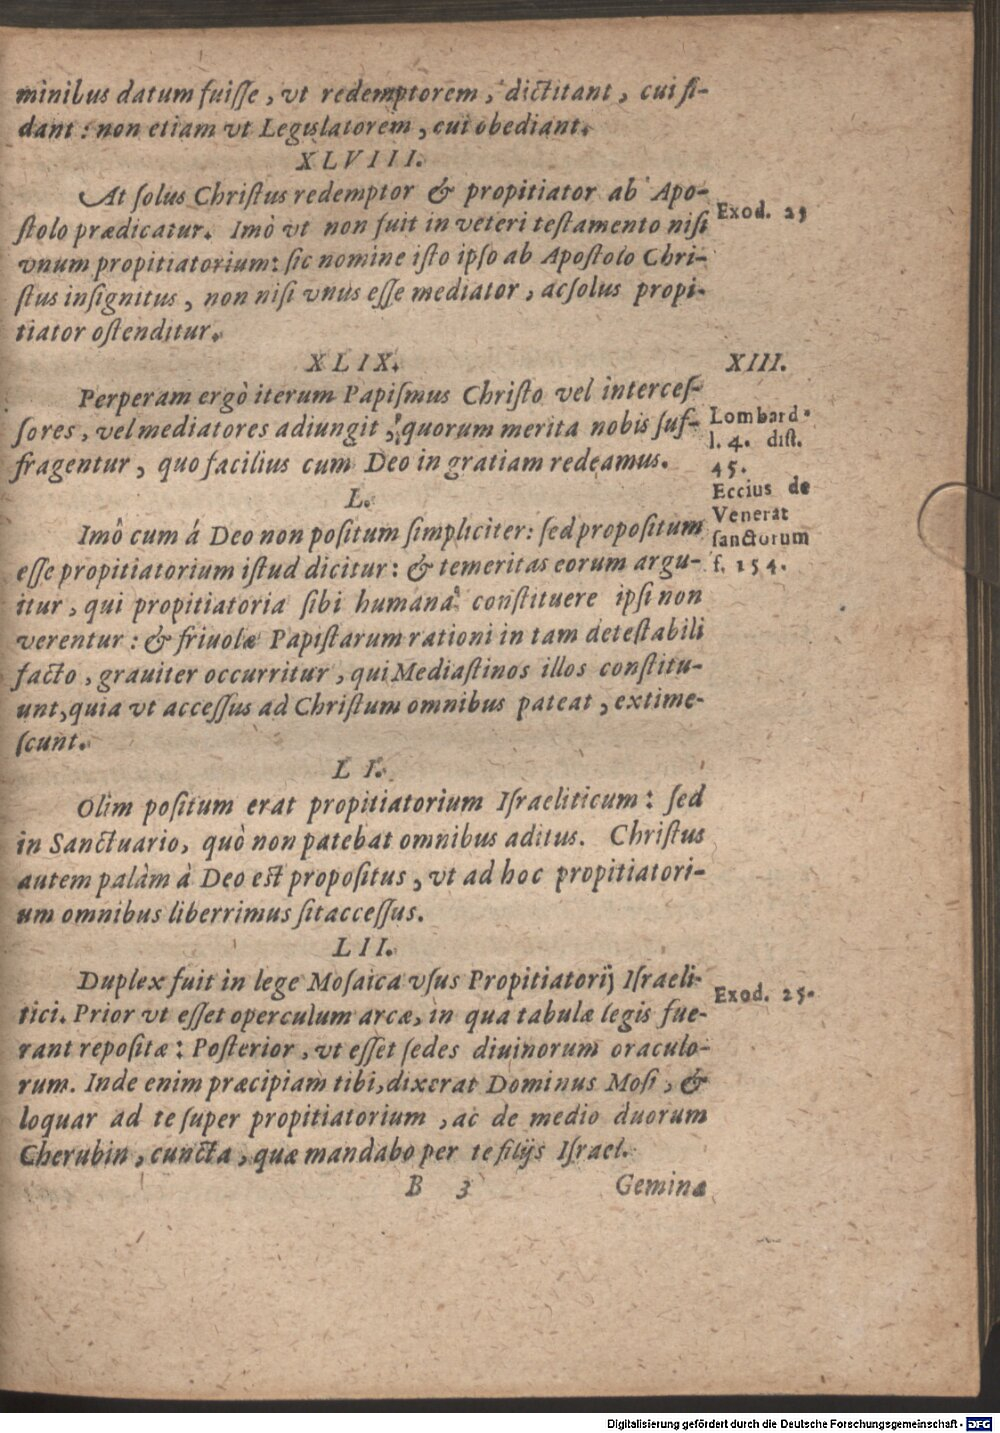 minibus datum fuiſſe, vt redemptorem, dictitant, cui fi-
dant: non etiam vt Legislatorem, cui obediant.
XLVIII.
At ſolus Chriſtus redemptor & propitiator ab Apo-
ſtolo prædicatur. Imò vt non fuit in veteri teſtamento niſi
vnum propitiatorium: ſic nomine iſto ipſo ab Apoſtolo Chri-
ſtus inſignitus, non niſi vnus eſſe mediator, ac ſolus propi-
tiator oſtenditur.
Exod. 25
XLIX.
Perperam ergò iterum Papiſmus Chriſto vel interceſ-
ſores, vel mediatores adiungit, quorum merita nobis ſuf-
fragentur, quo facilius cum Deo in gratiam redeamus.
XIII.
Lombard.
l. 4. diſt.
45.
Eccius de
Venerat
ſanctorum
f. 154.
L.
Imô cum á Deo non poſitum ſimpliciter: ſed propoſitum
eſſe propitiatorium iſtud dicitur: & temeritas eorum argu-
itur, qui propitiatoria ſibi humana conſtituere ipſi non
verentur: & friuolæ Papiſtarum rationi in tam deteſtabili
facto, grauiter occurritur, qui Mediaſtinos illos conſtitu-
unt, quia vt acceſſus ad Chriſtum omnibus pateat, extime-
ſcunt.
LI.
Olim poſitum erat propitiatorium Iſraeliticum: ſed
in Sanctuario, quò non patebat omnibus aditus. Chriſtus
autem palàm à Deo eſt propoſitus, vt ad hoc propitiatori-
um omnibus liberrimus ſit acceſſus.
LII.
Duplex fuit in lege Moſaica vſus Propitiatorij Iſraeli-
tici. Prior vt eſſet operculum arcæ, in qua tabulæ legis fue-
rant repoſitæ: Poſterior, vt eſſet ſedes diuinorum oraculo-
rum. Inde enim præcipiam tibi, dixerat Dominus Moſi, &
loquar ad te ſuper propitiatorium, ac de medio duorum
Cherubin, cuncta, quæ mandabo per te filijs Iſrael.
Exod. 25.
B 3 Gemina
Digitalisierung gefördert durch die Deutsche Forschungsgemeinschaft - DFG